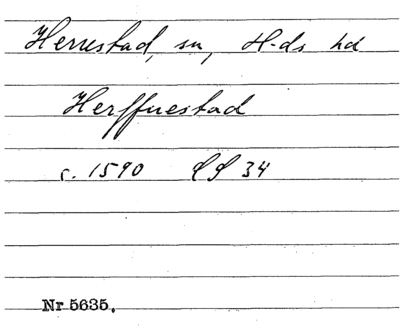 Herrestad, sn, H-ds hd
Herffuestad
c. 1590 34
Nr 5635.